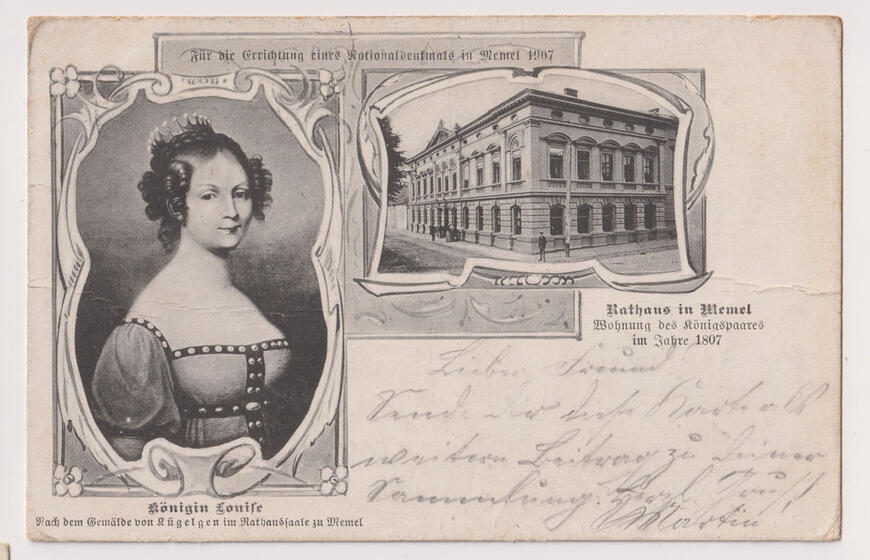 Für die Errichtung eines Nationaldenkmals in Memel 1907
Rathaus in Memel
Wohnung des Königspaares
im Jahre 1807
Lieber Freund
Sende dir diese Karte als
weitern Beitrag zu deiner
Sammlung. Herzl. Gruß
Martin
Königin Louise
Nach dem Gemälde von Kügelgen im Rathaussaale zu Memel